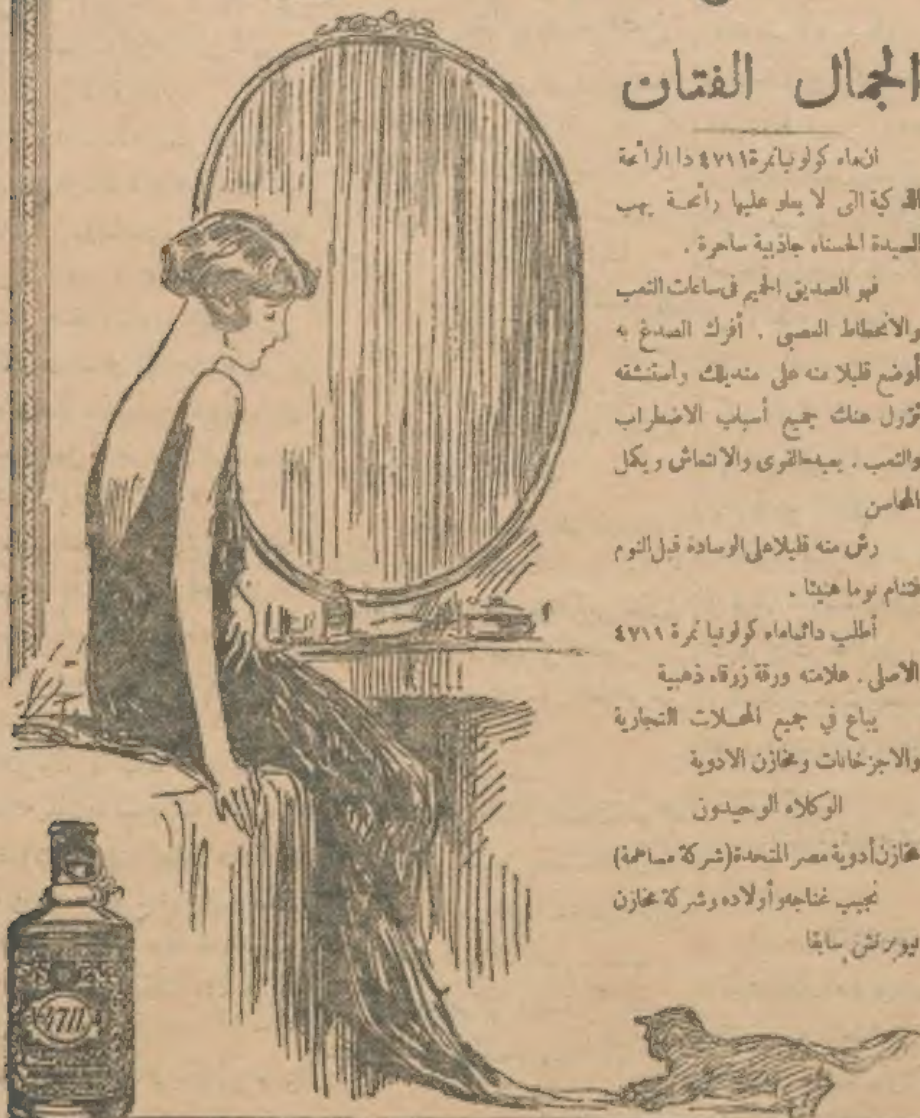 الجمال الفتان
ان ماء كولونيا نمرة ٤٧١١ ذا الرائحة
الذكية التي لا يعلو عليها رائحة يهب
السيدة الحسناء جاذبية ساحرة .
فهو الصديق الحميم في ساعات التعب
والانحطاط العصبي . أفرك الصدغ به
أوضع قليلا منه على منديلك واستنشقه
تزول عنك جميع أسباب الاضطراب
والتعب . يعيد القوى والانتعاش ويكمل
المحاسن
رش منه قليلا على الوسادة قبل النوم
فتنام نوما هنيئا .
أطلب دائما ماء كولونيا نمرة ٤٧١١
الاصلي . علامته ورقة زرقاء ذهبية
يباع في جميع المحلات التجارية
والاجزخانات ومخازن الادوية
الوكلاء الوحيدون
مخازن أدوية مصر المتحدة (شركة مساهمة)
نجيب غناجه وأولاده وشركة مخازن
سابقا
4711